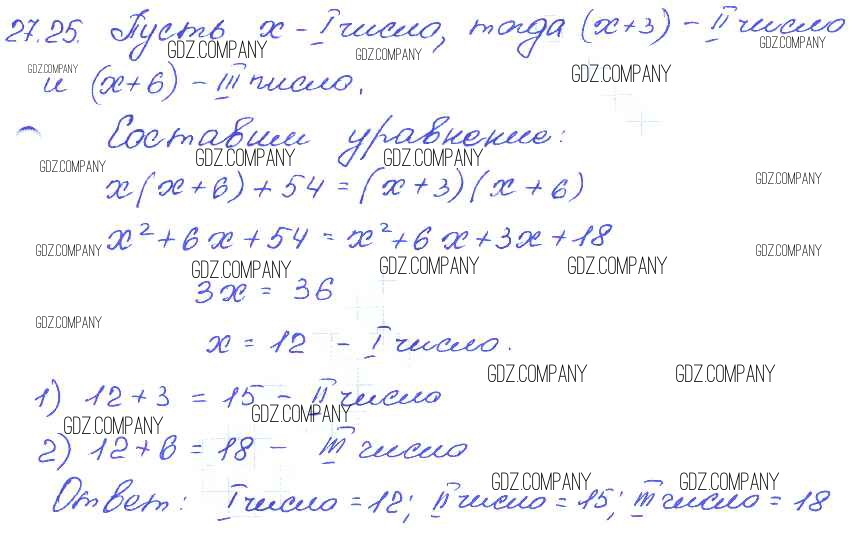 27.25. Пусть x - I число, тогда (x+3) - II число
GDZ.COMPANY GDZ.COMPANY GDZ.COMPANY
GDZ.COMPANY и (x+6) - III число. GDZ.COMPANY
Составим уравнение:
GDZ.COMPANY GDZ.COMPANY GDZ.COMPANY
x(x+6)+54=(x+3)(x+6) GDZ.COMPANY
x²+6x+54=x²+6x+3x+18
GDZ.COMPANY GDZ.COMPANY
GDZ.COMPANY GDZ.COMPANY GDZ.COMPANY
3x = 36
GDZ.COMPANY
x = 12 - I число.
GDZ.COMPANY GDZ.COMPANY
1) 12+3 = 15 - II число
GDZ.COMPANY GDZ.COMPANY
2) 12+6 = 18 - III число
GDZ.COMPANY GDZ.COMPANY
Ответ: I число = 12; II число = 15; III число = 18